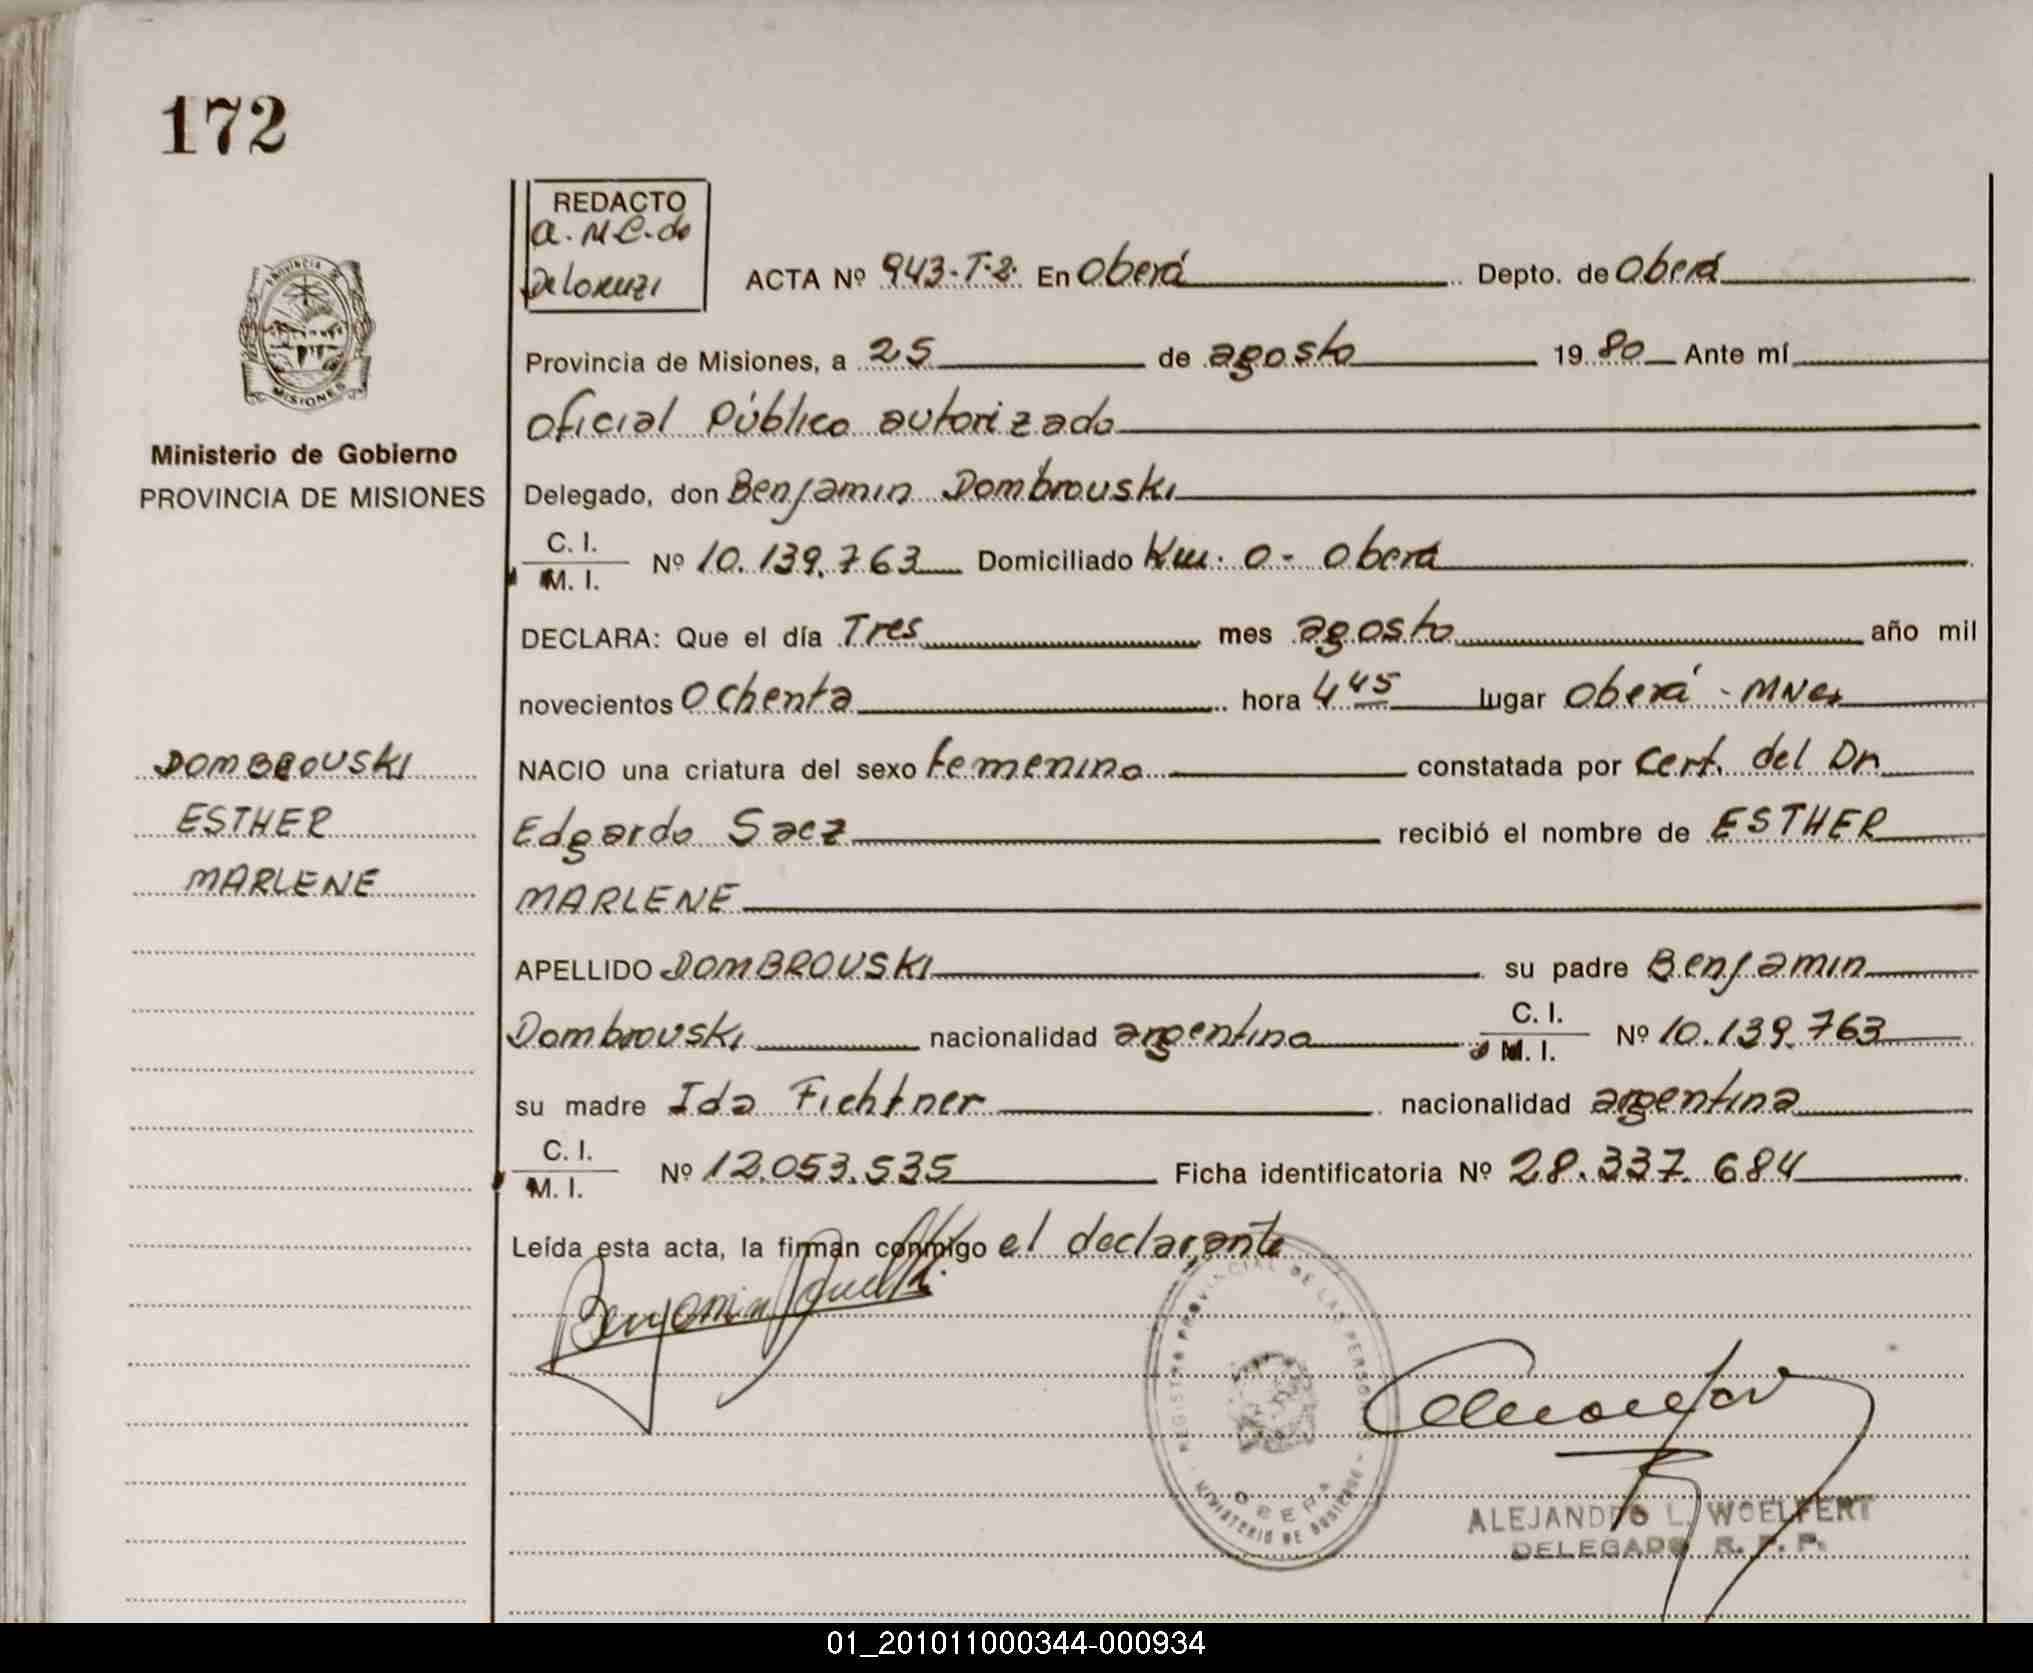 172
REDACTO
a. M C. de
De Lorenzi
ACTA Nº 943-T-2. En Oberá Depto. de Oberá
Provincia de Misiones, a 25 de agosto 1980 Ante mí
Oficial Público autorizado
Ministerio de Gobierno
PROVINCIA DE MISIONES
Delegado, don Benjamin Dombrouski
C. I.
M. I. Nº 10.139.763 Domiciliado Km. 0 - Oberá
DECLARA: Que el día Tres mes agosto año mil
novecientos Ochenta hora 4 45 lugar Oberá - MNes
NACIO una criatura del sexo femenino constatada por Cert. del Dr.
Edgardo Saez recibió el nombre de ESTHER
MARLENE
DOMBROUSKI
ESTHER
MARLENE
APELLIDO DOMBROUSKI su padre Benjamin
Dombrouski nacionalidad argentina C. I.
M. I. Nº 10.139.763
su madre Ida Fichtner nacionalidad argentina
C. I.
M. I. Nº 12.053.535 Ficha identificatoria Nº 28.337.684
Leída esta acta, la firman conmigo el declarante
Benjamin
REGISTRO PROVINCIAL DE LAS PERSONAS
OBERA
MINISTERIO DE GOBIERNO
ALEJANDRO L. WOELFERT
DELEGADO R. P. P.
PROVINCIA
MISIONES
01_201011000344-000934